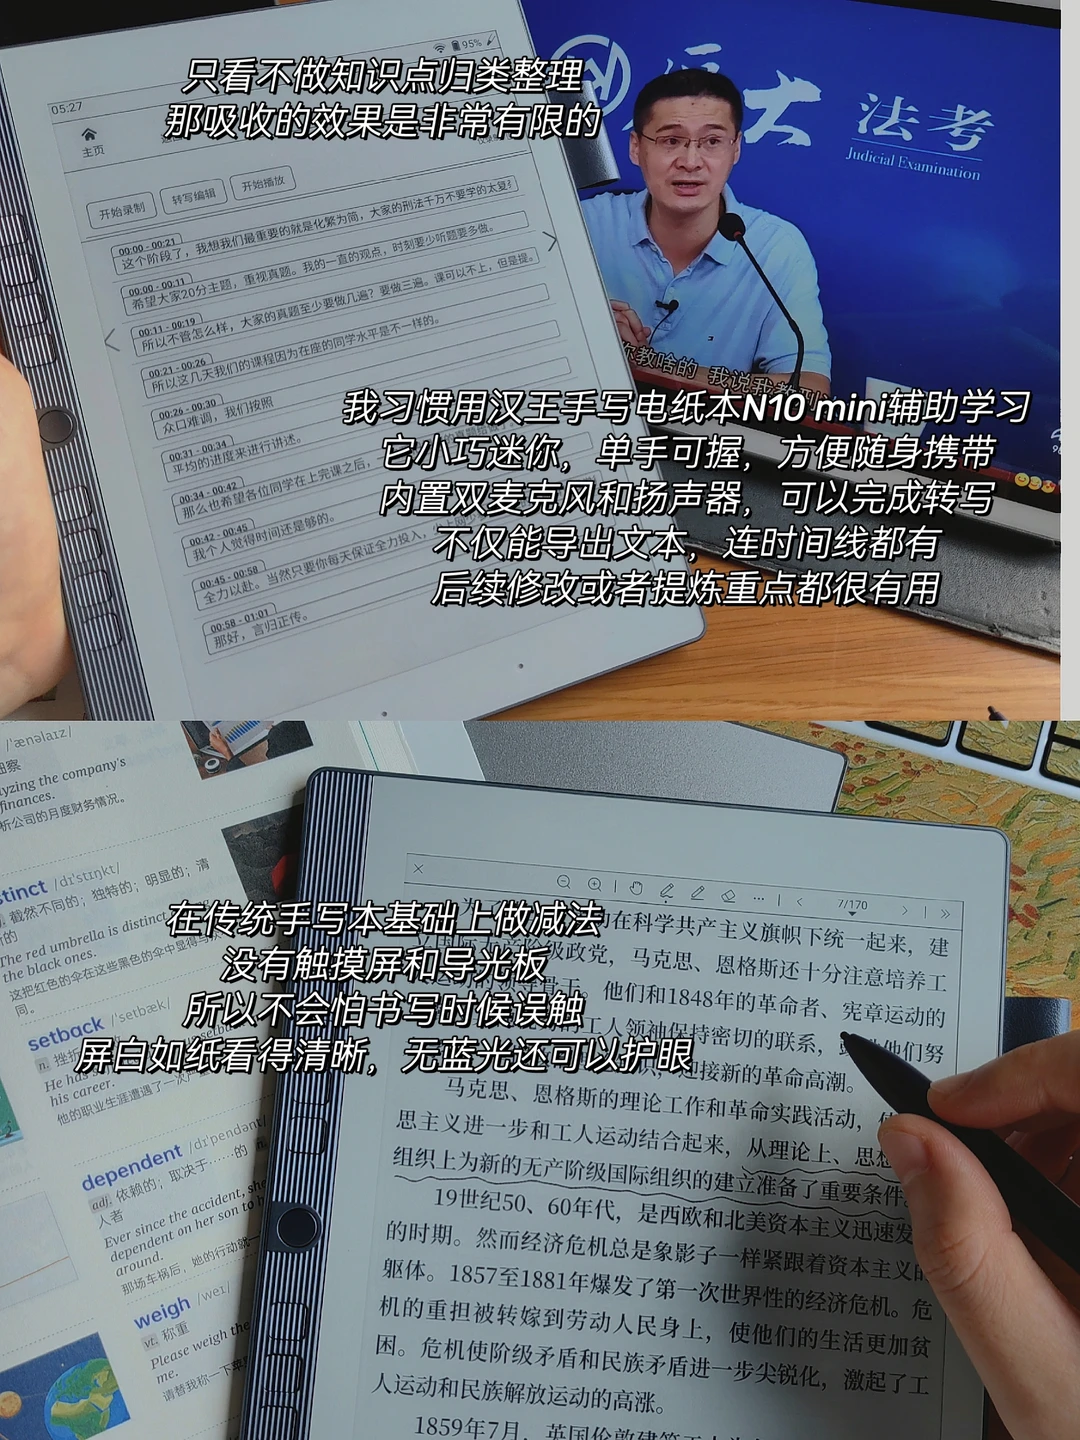 只看不做知识点归类整理
那吸收的效果是非常有限的
05:27
95%
主页
开始录制 转写编辑 开始播放
00:00 - 00:21
这个阶段了，我想我们最重要的就是化繁为简，大家的刑法千万不要学的太复杂
00:00 - 00:11
希望大家20分主题，重视真题。我的一直的观点，时刻要少听题要多做。
00:11 - 00:19
所以不管怎么样，大家的真题至少要做几遍？要做三遍。课可以不上，但是提。
00:21 - 00:26
所以这几天我们的课程因为在座的同学水平是不一样的。
00:26 - 00:30
众口难调，我们按照
00:31 - 00:34
平均的进度来进行讲述。
00:34 - 00:42
那么也希望各位同学在上完课之后，
00:42 - 00:45
我个人觉得时间还是够的。
00:45 - 00:58
全力以赴。当然只要你每天保证全力投入，
00:58 - 01:01
那好，言归正传。
厚大 法考
Judicial Examination
你教啥的 我说我教刑法
我习惯用汉王手写电纸本N10 mini辅助学习
它小巧迷你，单手可握，方便随身携带
内置双麦克风和扬声器，可以完成转写
不仅能导出文本，连时间线都有
后续修改或者提炼重点都很有用
/ˈænəlaɪz/
细察
lyzing the company's
finances.
析公司的月度财务情况。
stinct /dɪˈstɪŋkt/
截然不同的；独特的；明显的；清
The red umbrella is distinct
the black ones.
这把红色的伞在这些黑色的伞中显得与众
同。
setback /ˈsetbæk/
n. 挫折
He has s
his career.
他的职业生涯遭遇了一次
dependent /dɪˈpendənt/
adj. 依赖的；取决于……的
人者
Ever since the accident, she
dependent on her son to
around.
那场车祸后，她的行动就一
weigh /weɪ/
vt. 称重
Please weigh the
me.
请替我称一下
在传统手写本基础上做减法
没有触摸屏和导光板
所以不会怕书写时候误触
屏白如纸看得清晰，无蓝光还可以护眼
7/170
在科学共产主义旗帜下统一起来，建
政党，马克思、恩格斯还十分注意培养工
骨干。他们和1848年的革命者、宪章运动的
工人领袖保持密切的联系，
他们努
迎接新的革命高潮。
马克思、恩格斯的理论工作和革命实践活动，使
思主义进一步和工人运动结合起来，从理论上、思想
组织上为新的无产阶级国际组织的建立准备了重要条件
19世纪50、60年代，是西欧和北美资本主义迅速发
的时期。然而经济危机总是象影子一样紧跟着资本主义的
躯体。1857至1881年爆发了第一次世界性的经济危机。危
机的重担被转嫁到劳动人民身上，使他们的生活更加贫
困。危机使阶级矛盾和民族矛盾进一步尖锐化，激起了工
人运动和民族解放运动的高涨。
1859年7月，英国伦敦建筑工人为